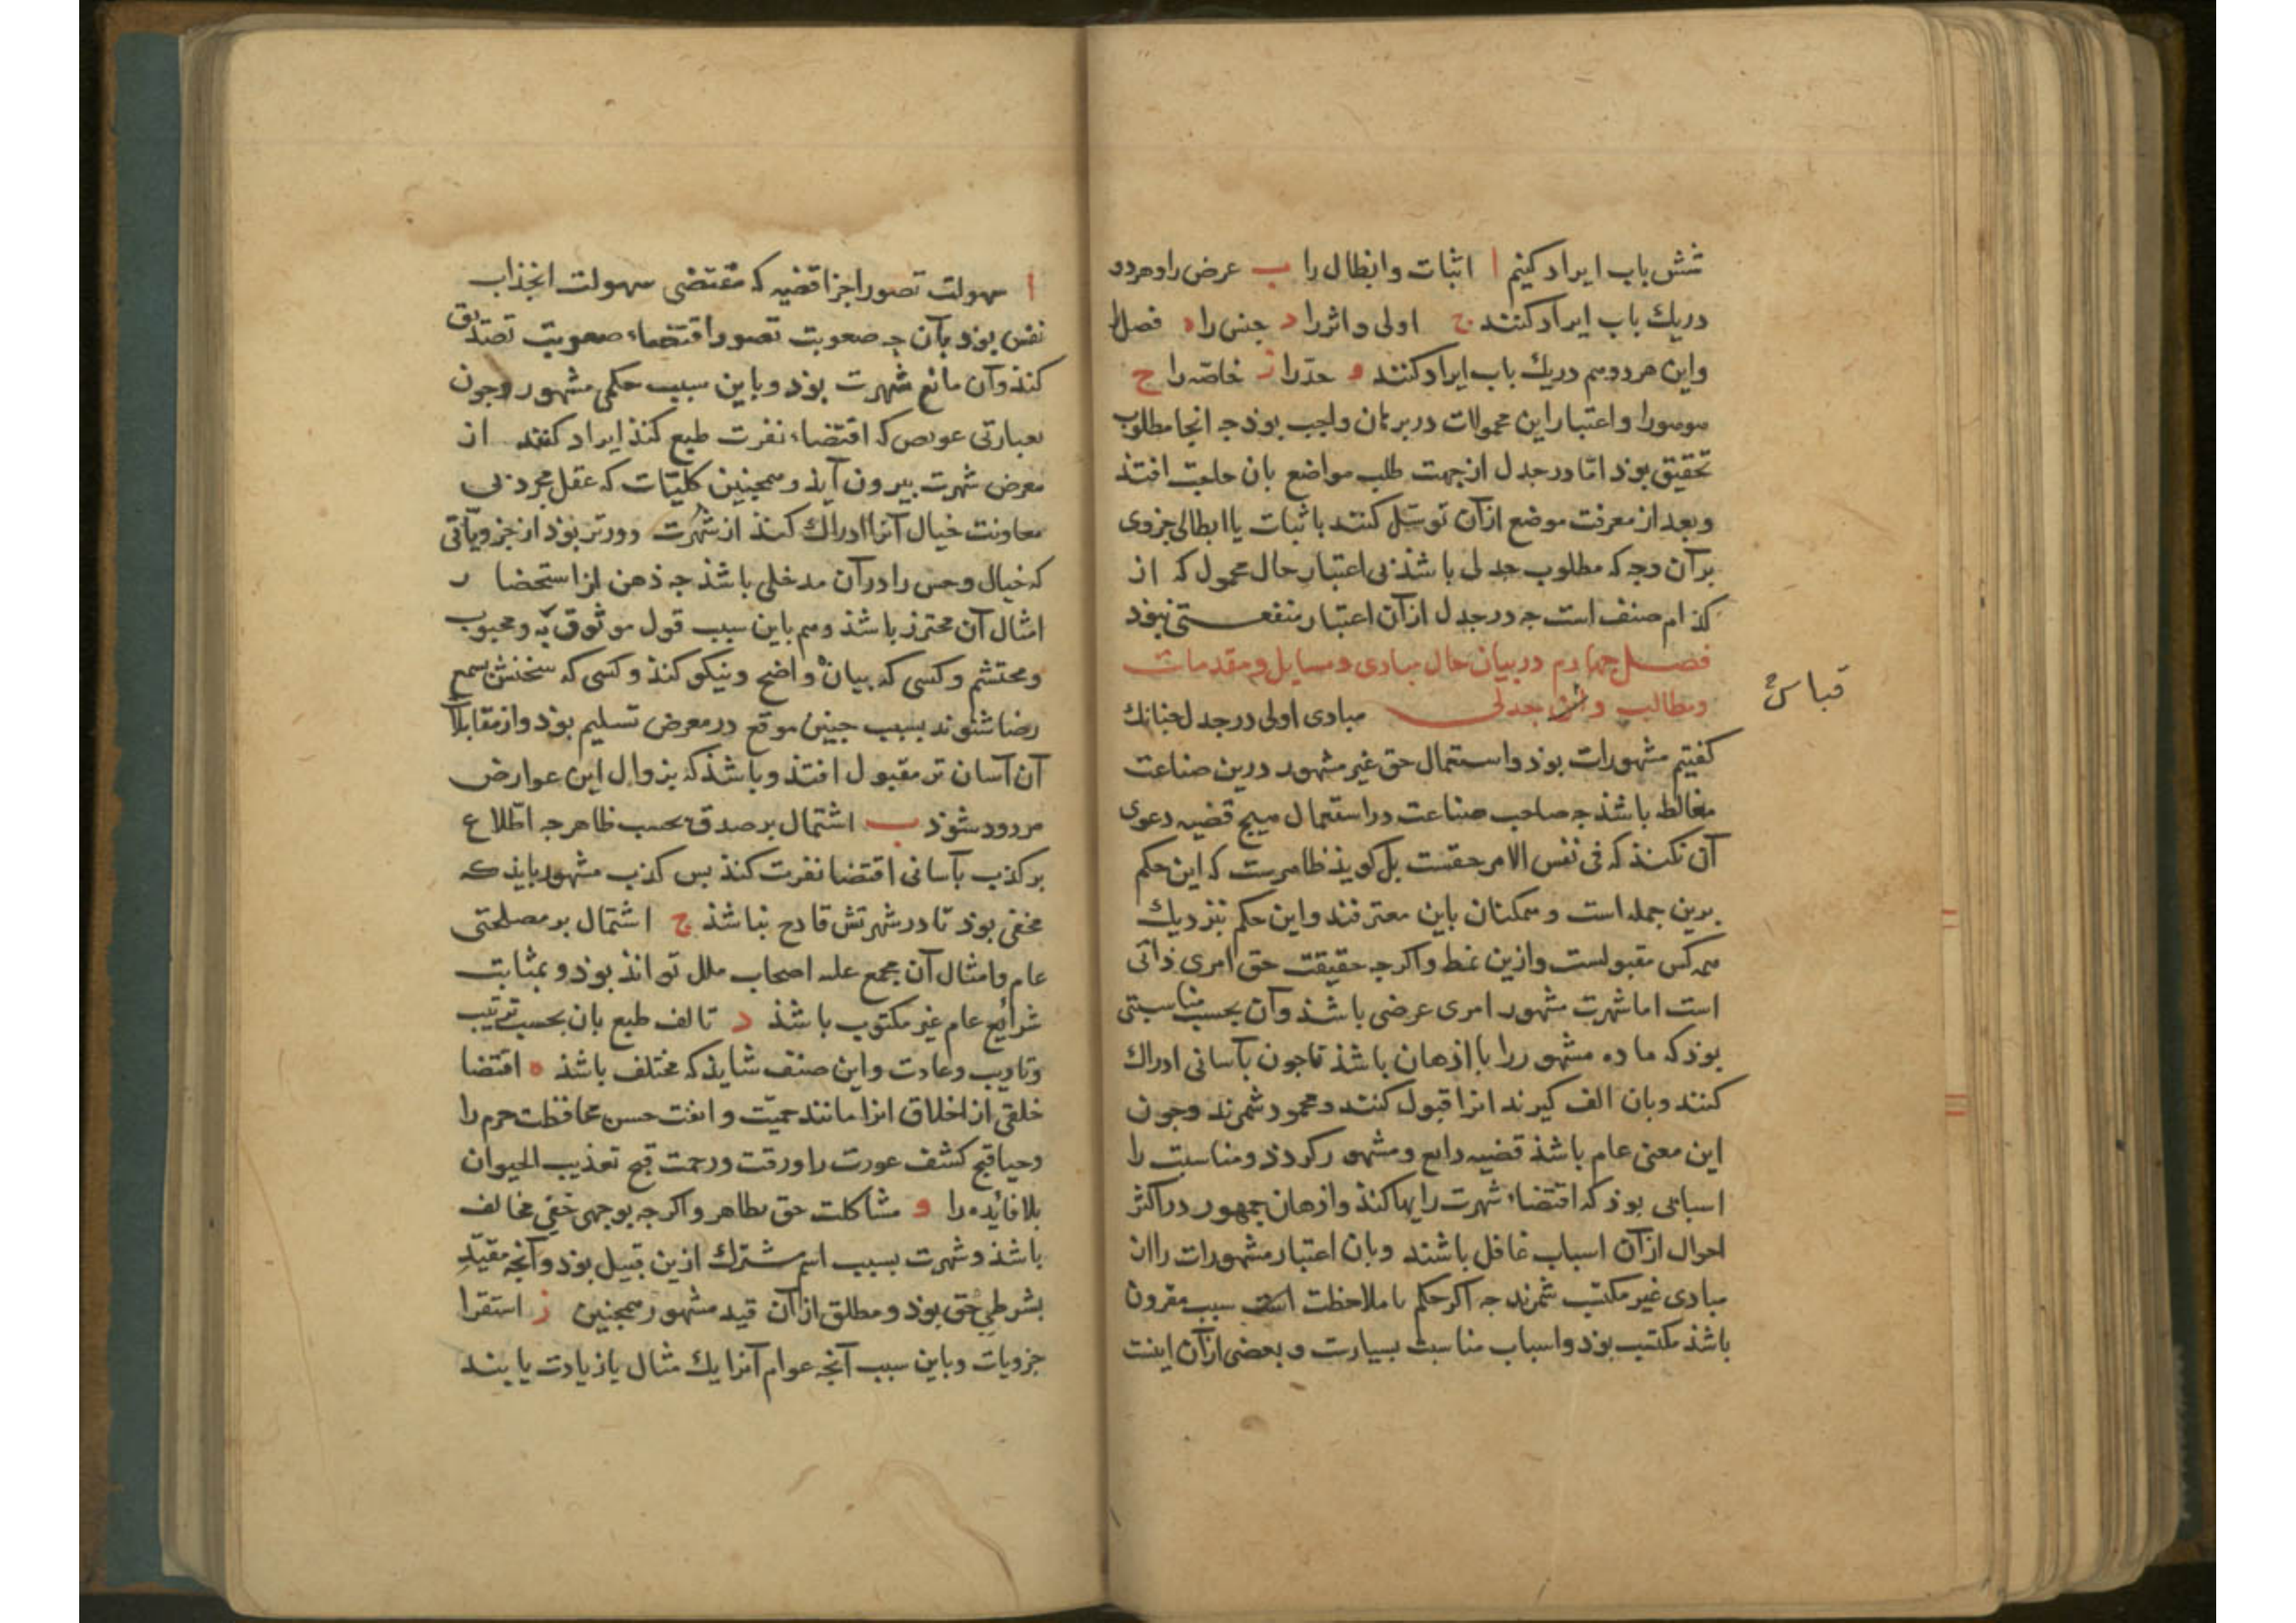 شش باب ایراد کنیم ا اثبات وابطال را ب عرض را وهر دو
دریك باب ایراد کنند ج اولی واثر را د جنس را ه فصل را
واین هر دو هم دریك باب ایراد کنند و حدّ را ز خاصّه را ح
هوهو را واعتبار این محمولات در برهان واجب بوذ جه انجا مطلوب
تحقیق بوذ امّا در جدل از جهت طلب مواضع بان حاجت افتذ
وبعد از معرفت موضع ازآن توسّل کنند با ثبات یا ابطالی جزوی
برآن وجه که مطلوب جدلی باشذ بی اعتبار حال محمول که از
کذام صنف است جه در جدل ازآن اعتبار منفعتی نبوذ
فصل چهارم در بیان حال مبادی ومسایل ومقدمات
ومطالب و جدلی مبادی اولی در جدل چنانك
قیاس
کفتیم مشهورات بوذ واستعمال حق غیر مشهور درین صناعت
مغالطه باشذ جه صاحب صناعت در استعمال هیج قضیه دعوی
آن نکنذ که فی نفس الامر حقست بل کویذ ظاهرست که این حکم
برین جمله است وهمکنان باین معترفند واین حکم بنزدیك
همه کس مقبولست وازین نمط واکرجه حقیقت حق امری ذاتی
است اما شهرت مشهور امری عرضی باشذ وآن بحسب مناسبتی
بوذ که ماده مشهور را با اذهان باشذ تا جون بآسانی ادراك
کنند وبان الف کیرند انرا قبول کنند ومحمود شمرند وجون
این معنی عام باشذ قضیه ذایع ومشهور کردذ ومناسبت را
اسبابی بوذ که اقتضاء شهرت رایها کنذ واذهان جمهور در اکثر
احوال ازآن اسباب غافل باشند وبان اعتبار مشهورات را از
مبادی غیر مکتسب شمرند جه اکر حکم با ملاحظت سبب مقرون
باشذ مکتسب بوذ واسباب مناسبت بسیارست وبعضی ازآن اینست
ا سهولت تصور اجزا قضیه که مقتضی سهولت انجذاب
نفس بوذ بآن جه صعوبت تصور اقتضاء صعوبت تصدیق
کنذ وآن مانع شهرت بوذ وباین سبب حکمی مشهور را جون
بعبارتی عویص که اقتضاء نفرت طبع کنذ ایراد کنند از
معرض شهرت بیرون آیذ وهمجنین کلیّات که عقل مجرد بی
معاونت خیال آنرا ادراك کنذ از شهرت دورتر بوذ از جزویّاتی
که خیال وحس را درآن مدخلی باشذ جه ذهن از استحضار
امثال آن محترز باشذ وهم باین سبب قول موثوق به ومحبوب
ومحتشم وکسی که بیان واضح ونیکو کنذ وکسی که سخنش بسمع
رضا شنوند بسبب حسن موقع در معرض تسلیم بوذ واز مقابلات
آن آسان تر مقبول افتذ وباشذ که بزوال این عوارض
مردود شوذ ب اشتمال بر صدق بحسب ظاهر جه اطّلاع
بر کذب بآسانی اقتضا نفرت کنذ بس کذب مشهور بایذ که
مخفی بوذ تا در شهرتش قادح نباشذ ج اشتمال بر مصلحتی
عام وامثال آن مجمع علیه اصحاب ملل تواند بوذ وبمثابت
شرایع عام غیر مکتوب باشذ د تالف طبع بان بحسب ترتیب
وتادیب وعادت واین صنف شایذ که مختلف باشذ ه اقتضا
خلقی از اخلاق انرا مانند حمیّت وانفت حسن محافظت حرم را
وحیا قبح کشف عورت را ورقت ورحمت قبح تعذیب الحیوان
بلافائده را و مشاکلت حق بظاهر واکرجه بوجهی خفی مخالف
باشذ وشهرت بسبب اسم مشترك ازین قبیل بوذ وآنجه مقیّد
بشرطی حق بوذ ومطلق ازآن قید مشهور همجنین ز استقرا
جزویات وباین سبب آنجه عوام آنرا یك مثال یا زیادت یابند